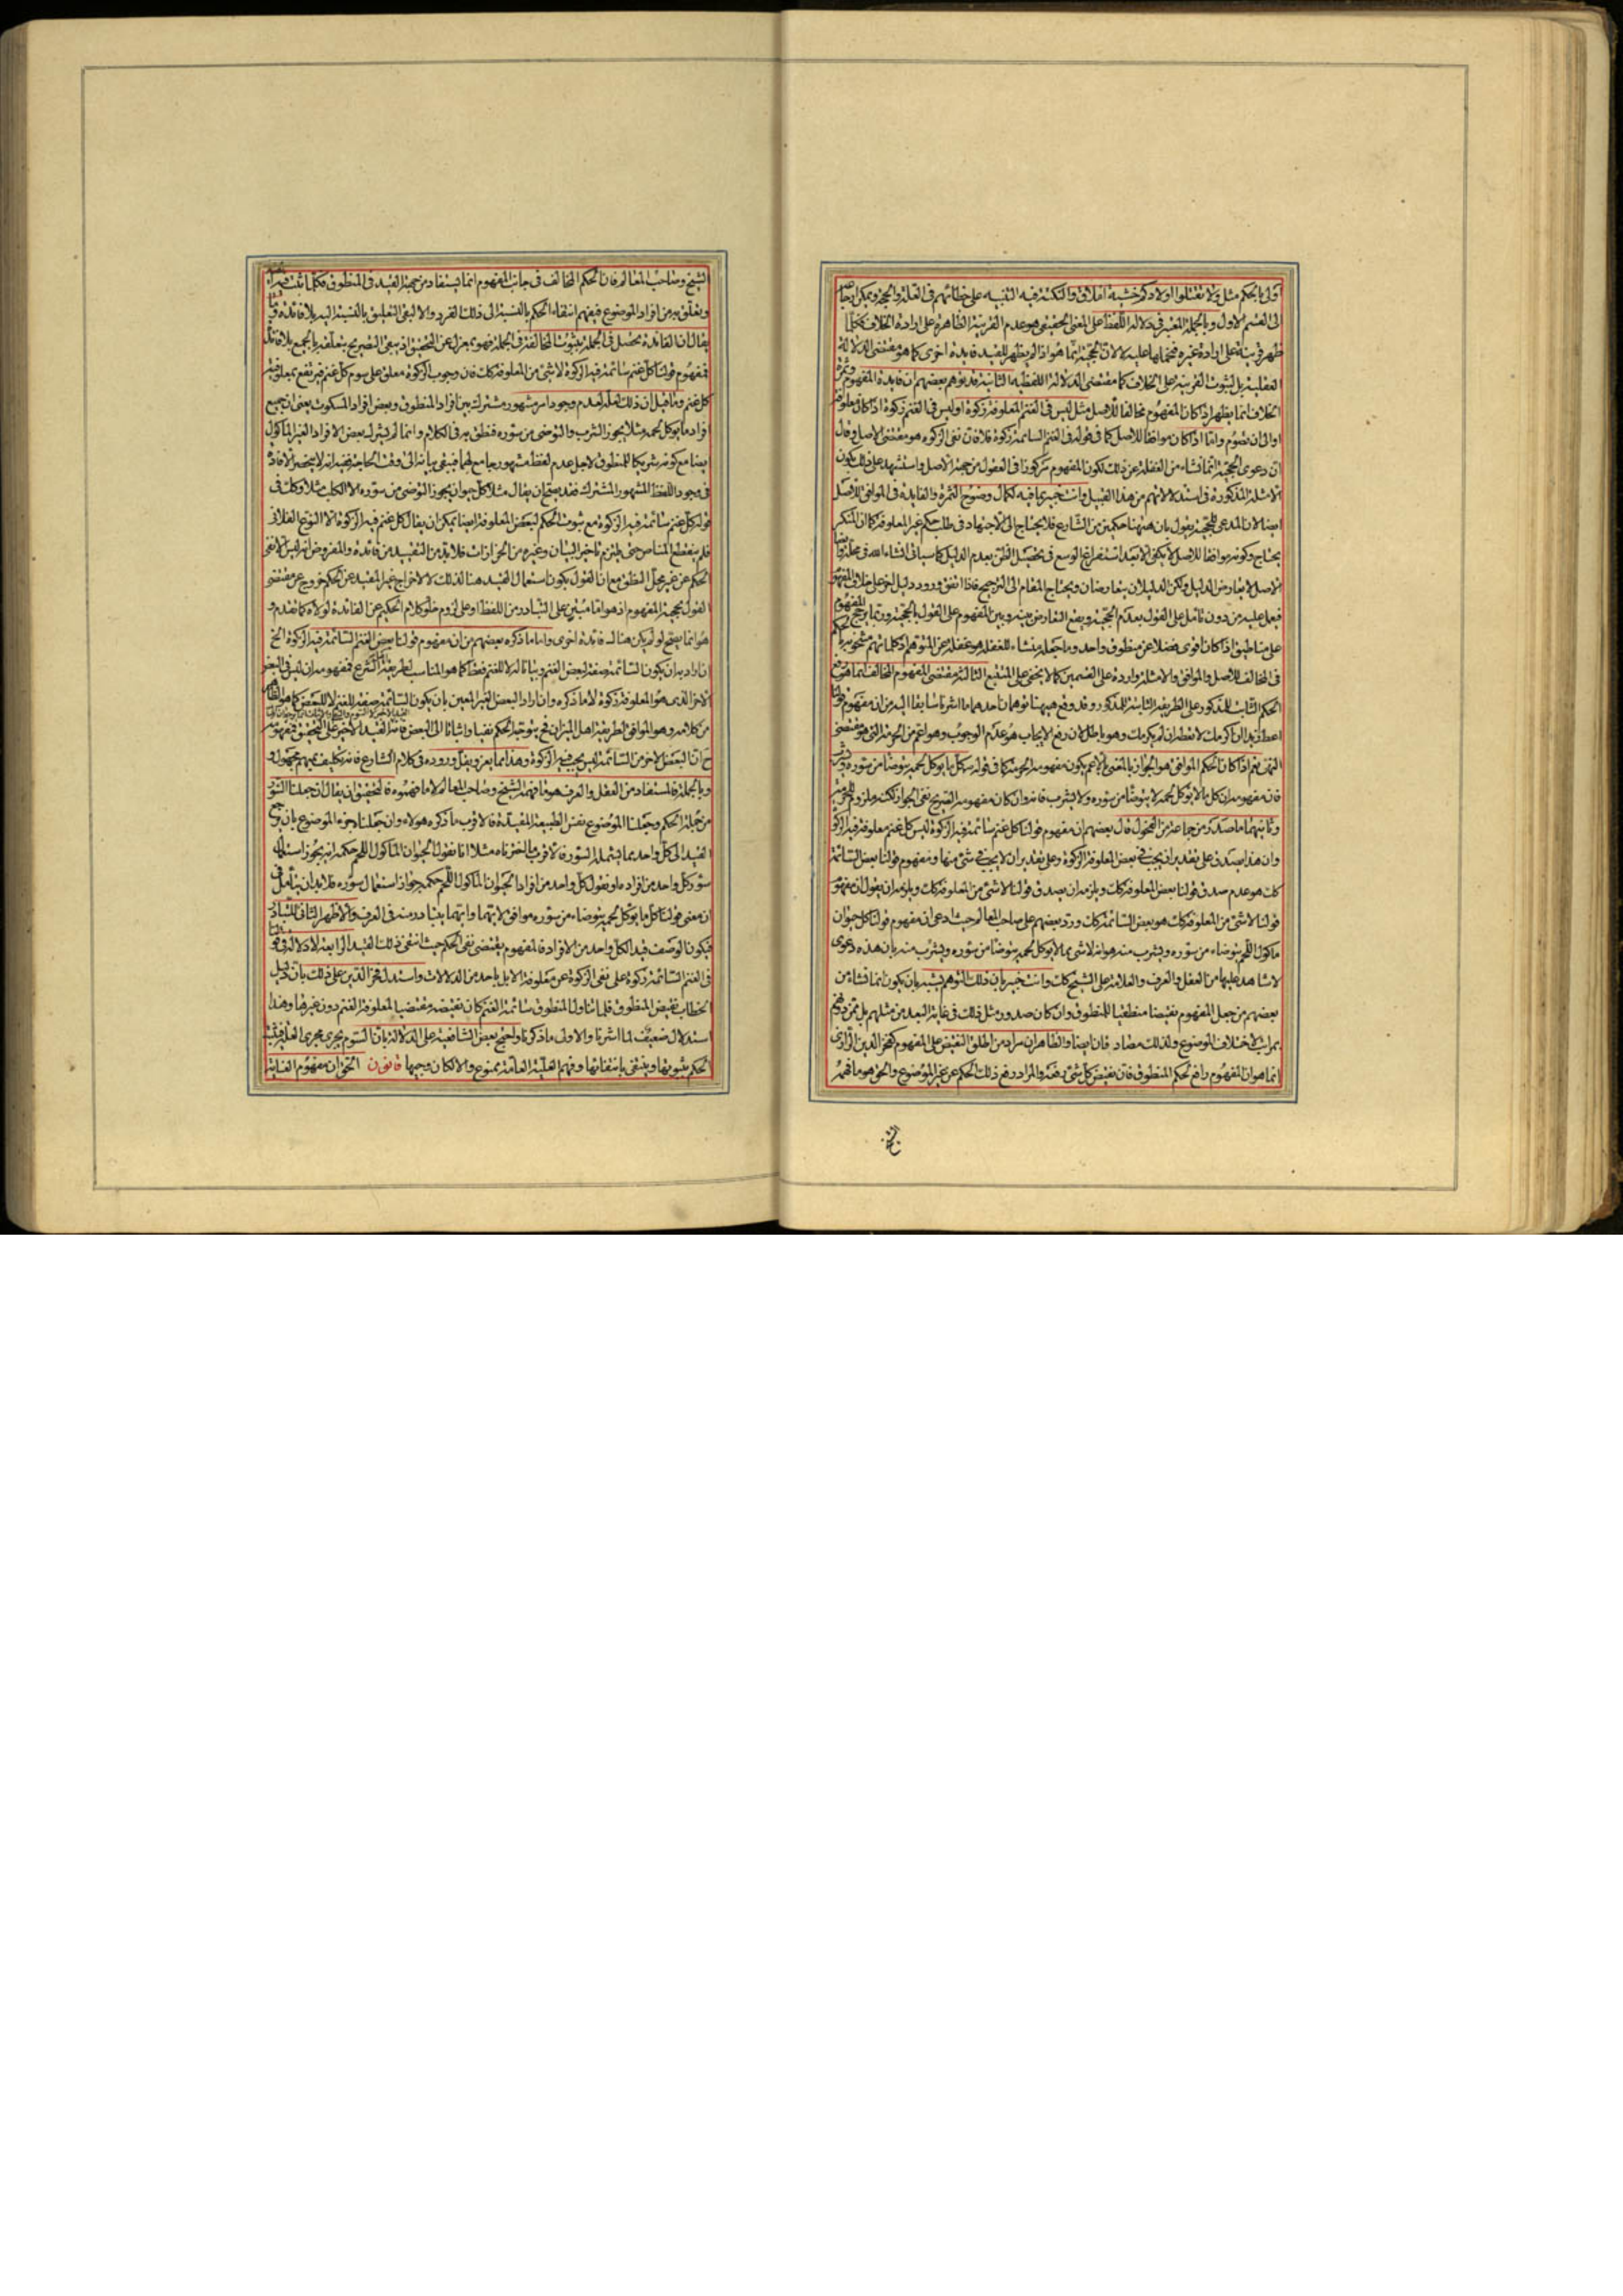 اولى بالحكم مثل ولا تقتلوا اولادكم خشية املاق والنكتة فيه التنبيه على خطائهم فى العلة والحجة ويمكن ارجاعه
الى القسم الاول وبالجملة المعتبر فى دلالة اللفظ على المعنى الحقيقى هو عدم القرينة الظاهرة على ارادة الخلاف فكلما
ظهر قرينة على ارادة غيره فنحملها عليه لا لان الحجية انما هو اذا لم يظهر للقيد فايدة اخرى كما هو مقتضى الدلالة
العقلية بل لثبوت القرينة على الخلاف كما مقتضى الدلالة اللفظية الثانية قد توهم بعضهم ان فايدة المفهوم وثمرة
الخلاف انما يظهر اذا كان المفهوم مخالفا للاصل مثل ليس فى الغنم المعلوفة زكوة او ليس فى الغنم زكوة اذا كان معلوفة
او الى ان تصوم واما اذا كان موافقا للاصل كما فى قوله فى الغنم السائمة زكوة فلا فان نفى الزكوة هو مقتضى الاصل وقال
ان دعوى الحجية انما نشاء من الغفلة عن ذلك لكون المفهوم مركوزا فى العقول من جهة الاصل واستشهد على ذلك بكون
الامثلة المذكورة فى استدلالاتهم من هذا القبيل وانت خبير بما فيه لكمال وضوح الثمرة والفايدة فى الموافق للاصل
ايضا لان المدعى للحجية يقول بان ههنا حكمين من الشارع فلا يحتاج الى الاجتهاد فى طلب حكم غير المعلوفة كما ان المنكر
يحتاج وكونه موافقا للاصل لا يكفى الا بعد استفراغ الوسع فى تحصيل الظن بعدم الدليل كما سياتى انشاء الله فى محله وايضا
الاصل لا يعارض الدليل ولكن الدليلان يتعارضان ويحتاج المقام الى الترجيح فاذا اتفق ورود دليل اخر على خلاف المفهوم
فيعمل عليه من دون تامل على القول بعدم الحجية ويقع التعارض بينه وبين المفهوم على القول بالحجية وربما يرجح المفهوم
على مناطيق اذا كان اقوى فضلا عن منطوق واحد وما جعله منشاء للغفلة هو غفلة عن المتوهم اذ كلماتهم مشحونة بالحكم
فى المخالف للاصل والموافق والامثلة واردة على القسمين كما لا يخفى على المتتبع الثالثة مقتضى المفهوم المخالف انما هو رفع
الحكم الثابت للمذكور على الطريقة الثابتة للمذكور وقد وقع ههنا توهمان احدهما ما اشرنا سابقا اليه من ان مفهوم قولنا
اعط زيدا ان اكرمك لا تعطه ان لم يكرمك وهو باطل لان رفع الايجاب هو عدم الوجوب وهو اعم من الحرمة التى هو مقتضى
النهى نعم اذا كان الحكم الموافق هو الجواز بالمعنى الاعم يكون مفهومه الحرمة كما فى قوله كل ما يوكل لحمه يتوضأ من سوره ويشرب
فان مفهومه ان كل ما لا يوكل لحمه لا يتوضأ من سوره ولا يشرب فانه وان كان مفهومه الصريح نفى الجواز لكنه ملزوم للحرمة
وثانيهما ما صدر من جماعة من الفحول قال بعضهم ان مفهوم قولنا كل غنم سائمة فيه الزكوة ليس كل غنم معلوفة فيه الزكوة
وان هذا يصدق على تقدير ان يجب فى بعض المعلوفة الزكوة وعلى تقدير ان لا يجب فى شئ منها ومفهوم قولنا بعض السائمة
كك هو عدم صدق قولنا بعض المعلوفة كك ويلزمه ان يصدق قولنا لا شئ من المعلوفة كك ويلزمه ان يقول ان مفهوم
قولنا لا شئ من المعلوفة كك هو بعض السائمة كك ورد بعضهم على صاحب المعالم حيث ادعى ان مفهوم قولنا كل حيوان
ماكول اللحم يتوضاء من سوره ويشرب منه هو انه لا شئ مما لا يوكل لحمه يتوضأ من سوره ويشرب منه بان هذه دعوى
لا شاهد عليها من العقل والعرف والعلامة على الشيخ كك وانت خبير بان ذلك التوهم يشبه بان يكون انما نشاء من
بعضهم من جعل المفهوم نقيضا منطقيا للمنطوق وان كان صدور مثل ذلك فى غاية البعد من مثلهم بل ممن دونهم
بمراتب لاختلاف الموضوع ولذلك مضاد فان ايضا والظاهر ان مراد من اطلق النقيض على المفهوم كفخر الدين الرازى
انما هو ان المفهوم رافع لحكم المنطوق فان نقيض كل شئ رفعه والمراد رفع ذلك الحكم عن غير الموضوع والحق هو ما فهمه
الشيخ
الشيخ وصاحب المعالم فان الحكم المخالف فى جانب المفهوم انما يستفاد من جهة القيد فى المنطوق فكلما ثبت فيه القيد
وتعلق به من افراد الموضوع فيفهم انتفاء الحكم بالنسبة الى ذلك الفرد والا لبقى التعليق بالنسبة اليه بلا فائدة وما
يقال ان الفائدة يحصل فى الجملة بثبوت المخالفة فى الجملة فهو بمعزل عن التحقيق اذ يبقى التصريح بتعلقه بالجميع بلا فائدة
فمفهوم قولنا كل غنم سائمة فيه الزكوة لا شئ من المعلوفة كك فان وجوب الزكوة معلق على سوم كل غنم فيرتفع بمعلوفية
كل غنم وما قيل ان ذلك لعله لعدم وجود امر مشهور مشترك بين افراد المنطوق وبعض افراد المسكوت يعنى ان جميع
افراد ما يوكل لحمه مثلا يجوز الشرب والتوضى من سوره فنطق به فى الكلام وانما لم يشرك بعض الافراد الغير الماكول
ايضا مع كونه شريكا للمنطوق لاجل عدم لفظ مشهور جامع لهما فيبقى بيانه الى وقت الحاجة ففيه انه لا ينحصر الافادة
فى وجود اللفظ المشهور المشترك فقد يصح ان يقال مثلا كل حيوان يجوز التوضى من سوره الا الكلب مثلا وكك فى
قوله كل غنم سائمة فيه الزكوة مع ثبوت الحكم لبعض المعلوفة ايضا يمكن ان يقال كل غنم فيه الزكوة الا النوع الفلانى
فلم ينقطع المناص حتى يلزم تاخير البيان وغيره من الحزازات فلا بد من التقييد من فائدة والمفروض انه ليس الا نفى
الحكم عن غير محل النطق مع ان القول بكون استعمال القيد هنا لذلك لا لاخراج غير المقيد عن الحكم خروج عن مقتضى
القول بحجية المفهوم اذ هو اما مبتن على التبادر من اللفظ او على لزوم خلو كلام الحكيم عن الفائدة لولاه كما تقدم و
هو انما يصح لو لم يكن هناك فائدة اخرى واما ما ذكره بعضهم من ان مفهوم قولنا بعض الغنم السائمة فيه الزكوة الخ
ان اراد به ان يكون السائمة صفة لبعض الغنم وبيانا له لا للغنم فقط كما هو المناسب لطريقة اهل الشرع فمفهومه ان ليس فى البعض
الاخر الذى هو المعلوفة زكوة لا ما ذكره وان اراد البعض الغير المعين بان يكون السائمة صفة للغنم لا للبعض كما هو الظاهر
من كلامه وهو الموافق لطريقة اهل الميزان فح يتوجه الحكم نفيا واثباتا الى البعض فانه القيد الاخير على التحقيق فمفهومه
ح ان البعض الاخر من السائمة ليس يجب فيه الزكوة وهذا مما يعز ويقل وروده فى كلام الشارع فانه تكليف بمبهم مجهول و
وبالجملة فالمستفاد من العقل والعرف هو ما فهمه الشيخ وصاحب المعالم لا ما فهموه فالتحقيق ان يقال ان جعلنا السور
من جملة الحكم وجعلنا الموضوع نفس الطبيعة المقيدة فالاقرب ما ذكره هولاء وان جعلنا جزء الموضوع بان يرجع
القيد الى كل واحد مما يشمله السور فالاقرب ما اخترناه مثلا اما نقول الحيوان الماكول اللحم حكمه انه يجوز استعمال
سور كل واحد من افراده او نقول كل واحد من افراد الحيوان الماكول اللحم حكمه جواز استعمال سوره فلا بد ان يتأمل فى
ان معنى قولنا كل ما يوكل لحمه يتوضاء من سوره موافق لايتهما وايتهما يتبادر منه فى العرف والاظهر الثانى للتبادر
فيكون الوصف قيدا لكل واحد من الافراد فالمفهوم يقتضى نفى الحكم حيث انتفى ذلك القيد الرابعة لا دلالة فى قولنا
فى الغنم السائمة زكوة على نفى الزكوة عن معلوفة الابل باحد من الدلالات واستدل فخر الدين على ذلك بان دليل
الخطاب نقيض المنطوق فلما تناول المنطوق سائمة الغنم كان نقيضه مقتضيا لمعلوفة الغنم دون غيرها وهذا
استدلال ضعيف لما اشرنا والاولى ما ذكرنا واحتج بعض الشافعية على الدلالة بان السوم يجرى مجرى العلة فيثبت
الحكم بثبوتها وينتفى بانتفائها وفهم اهلية العامة ممنوع والا لكان وجيها قانون الحق ان مفهوم الغاية